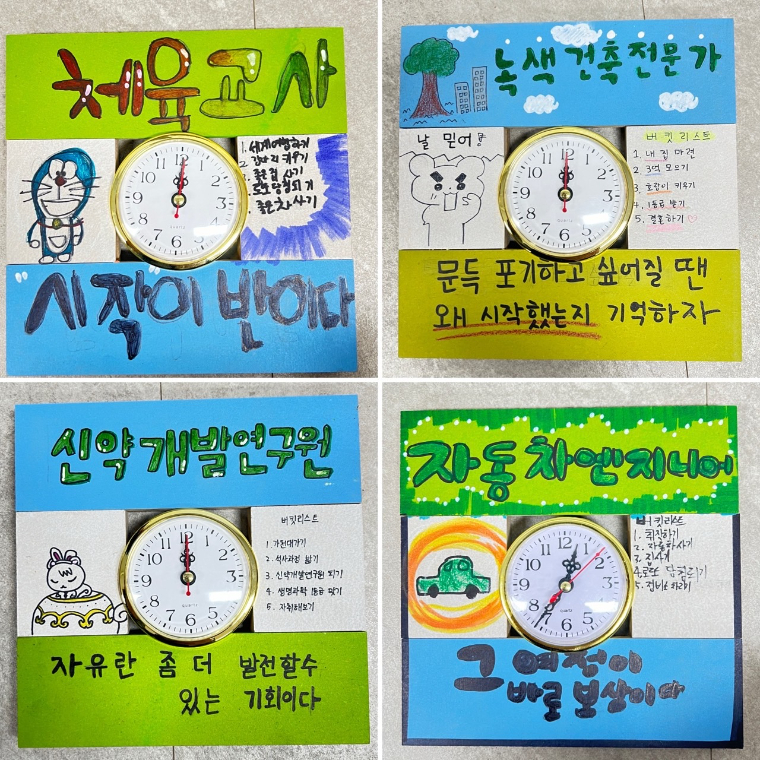 체육교사
1. 세계여행하기
2. 강아지 키우기
좋은 집 사기
로또 당첨되기
좋은 차 사기
12
1
2
3
4
5
6
7
8
9
10
11
QUARTZ
"시작이 반이다"
녹색건축전문가
날 믿어!
버킷리스트
1. 내 집 마련
2. 3억 모으기
3. 호랑이 키우기
4. 1등급 받기
5. 결혼하기♡
12
1
2
3
4
5
6
7
8
9
10
11
QUARTZ
문득 포기하고 싶어질 땐
왜 시작했는지 기억하자
신약개발연구원
버킷리스트
1. 가천대가기
2. 석사과정 밟기
3. 신약개발연구원 되기
4. 생명과학 1등급 맞기
5. 자취해보기
12
1
2
3
4
5
6
7
8
9
10
11
QUARTZ
자유란 좀 더 발전할수
있는 기회이다
자동차엔지니어
버킷리스트
1. 취직하기
2. 자동차사기
3. 집사기
4. 로또 당첨되기
5.
12
1
2
3
4
5
6
7
8
9
10
11
QUARTZ
그 여정이
바로 보상이다